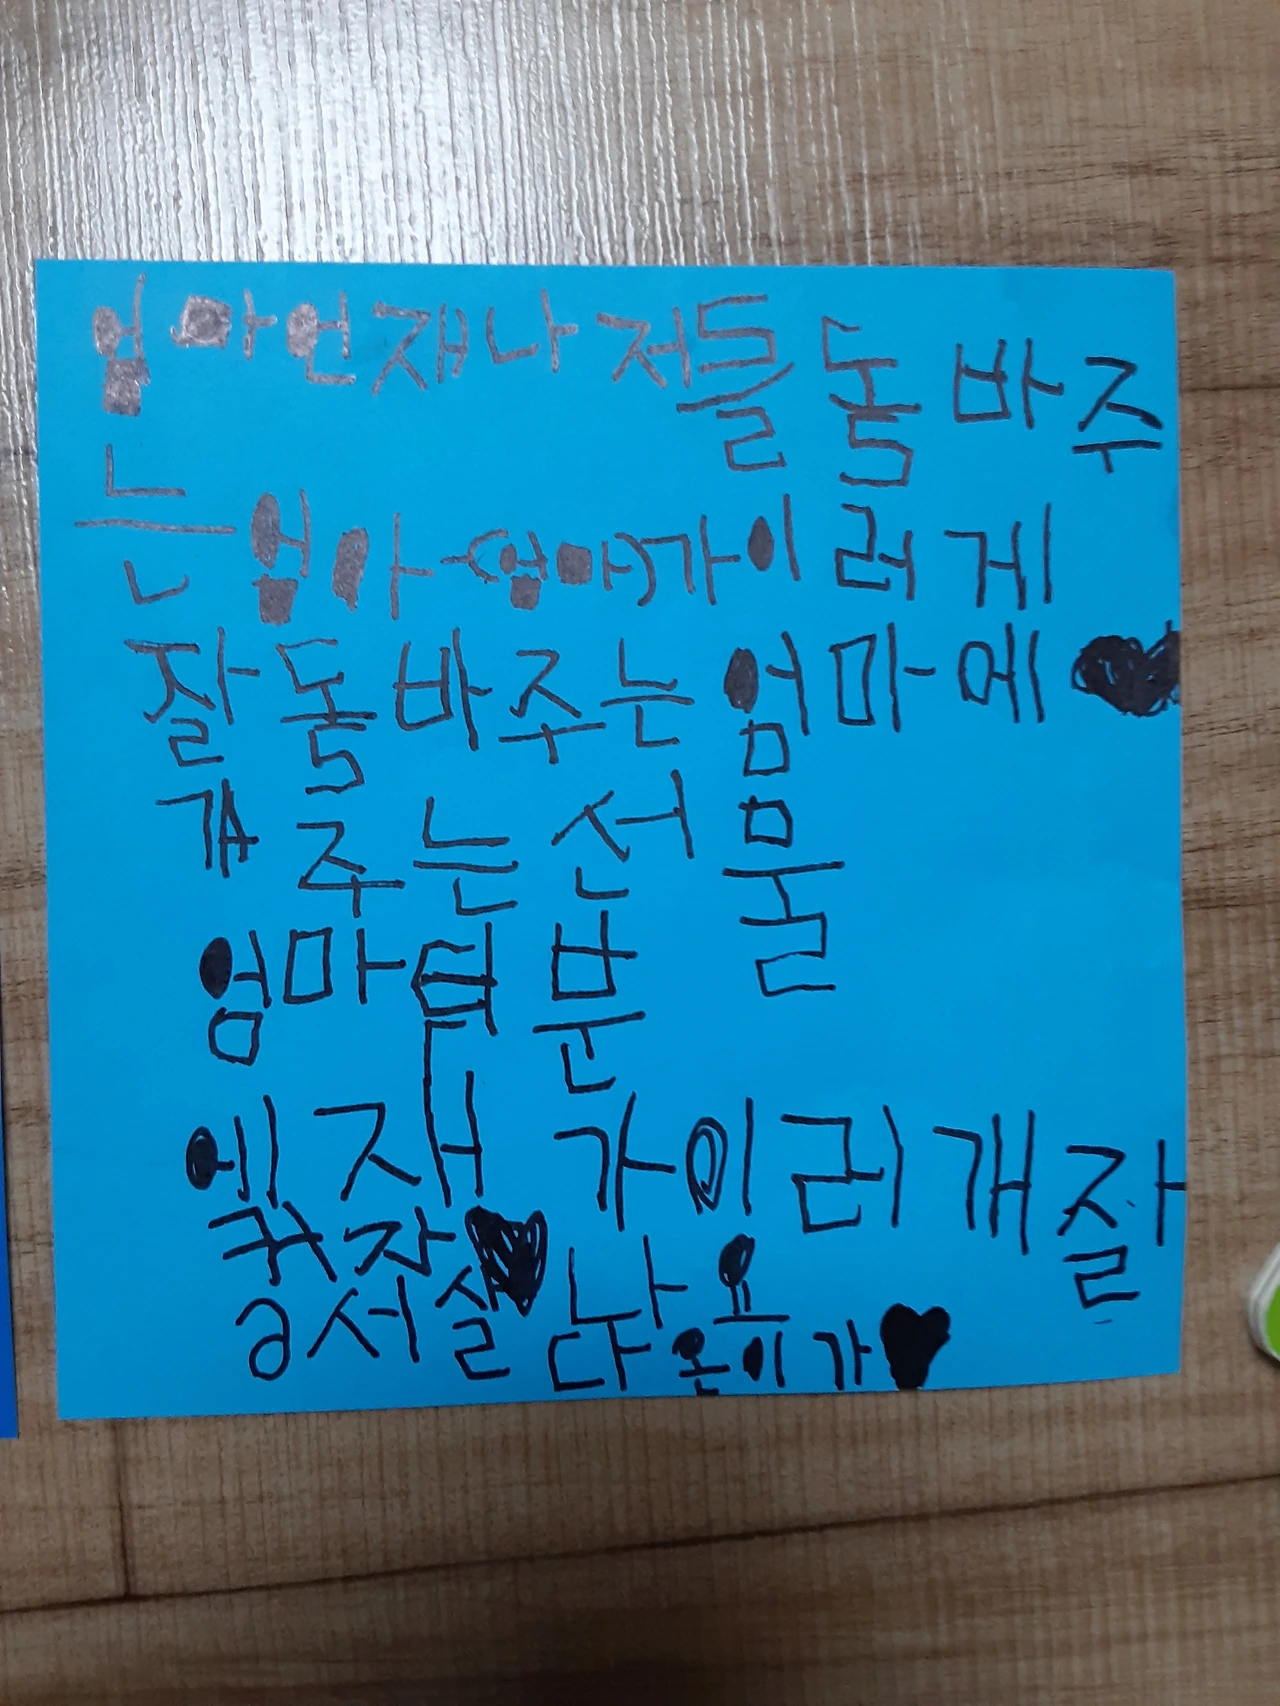 엄마언재나 저들 돌바주
는 엄마-(엄마)가이러게
잘돌바주는엄마에♥
걔주는선물
엄마덥문
에저가이러개잘
커자♥나요
서실다온이가♥